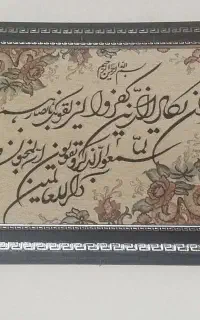 بسم الله الرحمن الرحيم
يكاد الذين كفروا ليزلقونك بابصار
لما
سمعوا الذكر ويقولون انه لمجنون
ذكر للعالمين